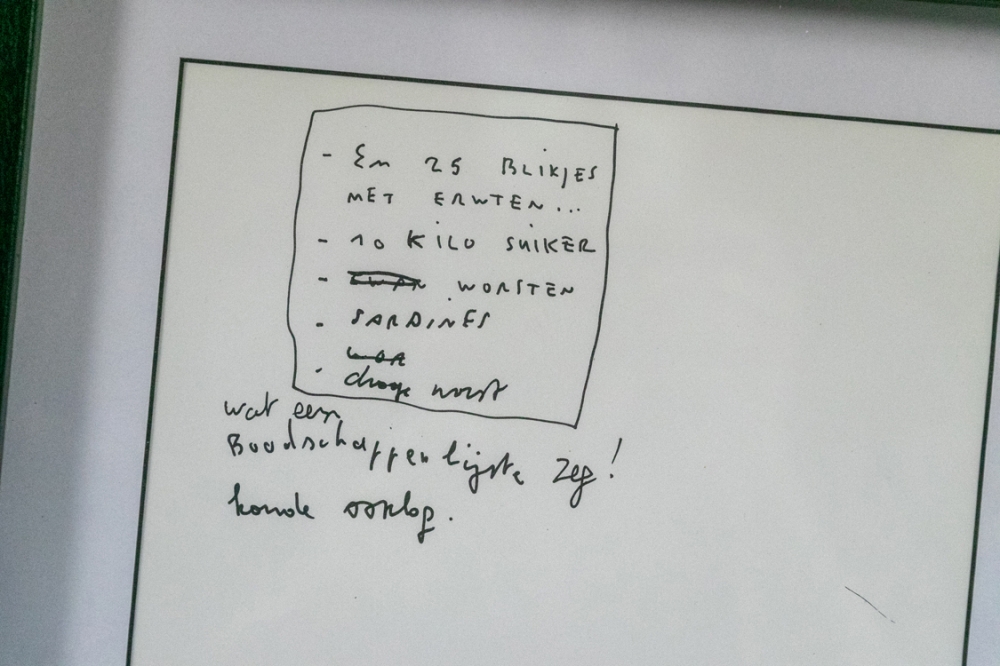 - En 25 BLIKJES
MET ERWTEN...
- 10 KILO SUIKER
- WORSTEN
- SARDINES
- droge worst
wat een
Boodschappenlijste zeg!
koude oorlog.